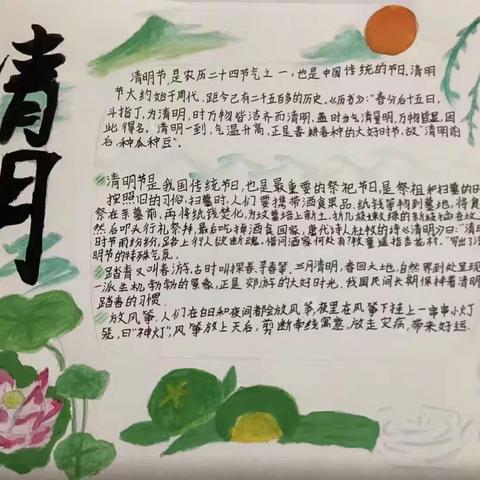 清明
清明节,是农历二十四节气之一,也是中国传统的节日,清明
节大约始于周代,距今已有二千五百多的历史。《历书》:"春分后十五日,
斗指丁,为清明,时万物皆洁齐而清明,盖时当气清景明,万物皆显,因
此得名。清明一到,气温升高,正是春耕春种的大好时节,故"清明前
后,种瓜种豆"。
清明节是我国传统节日,也是最重要的祭祀节日,是祭祖和扫墓的日
按照旧的习俗,扫墓时,人们要携带酒食果品、纸钱等物到墓地,将食
祭在亲墓前,再将纸钱焚化,为坟墓培上新土,折几枝嫩绿的新枝插在坟
然后叩头行礼祭拜,最后吃掉酒食回家。唐代诗人杜牧的诗《清明》曰:"清
时节雨纷纷,路上行人欲断魂。借问酒家何处有?牧童遥指杏花村。"写出了清
明节的特殊气氛。
踏青又叫春游,古时叫探春、寻春等。三月清明,春回大地,自然界到处呈现
一派生机勃勃的景象,正是郊游的大好时光,我国民间长期保持着清明
踏青的习惯。
放风筝,人们在白日和夜间都会放风筝,夜里在风筝下挂上一串串小灯
笼,曰"神灯",风筝放上天后,剪断牵线寓意,放走灾病,带来好运。